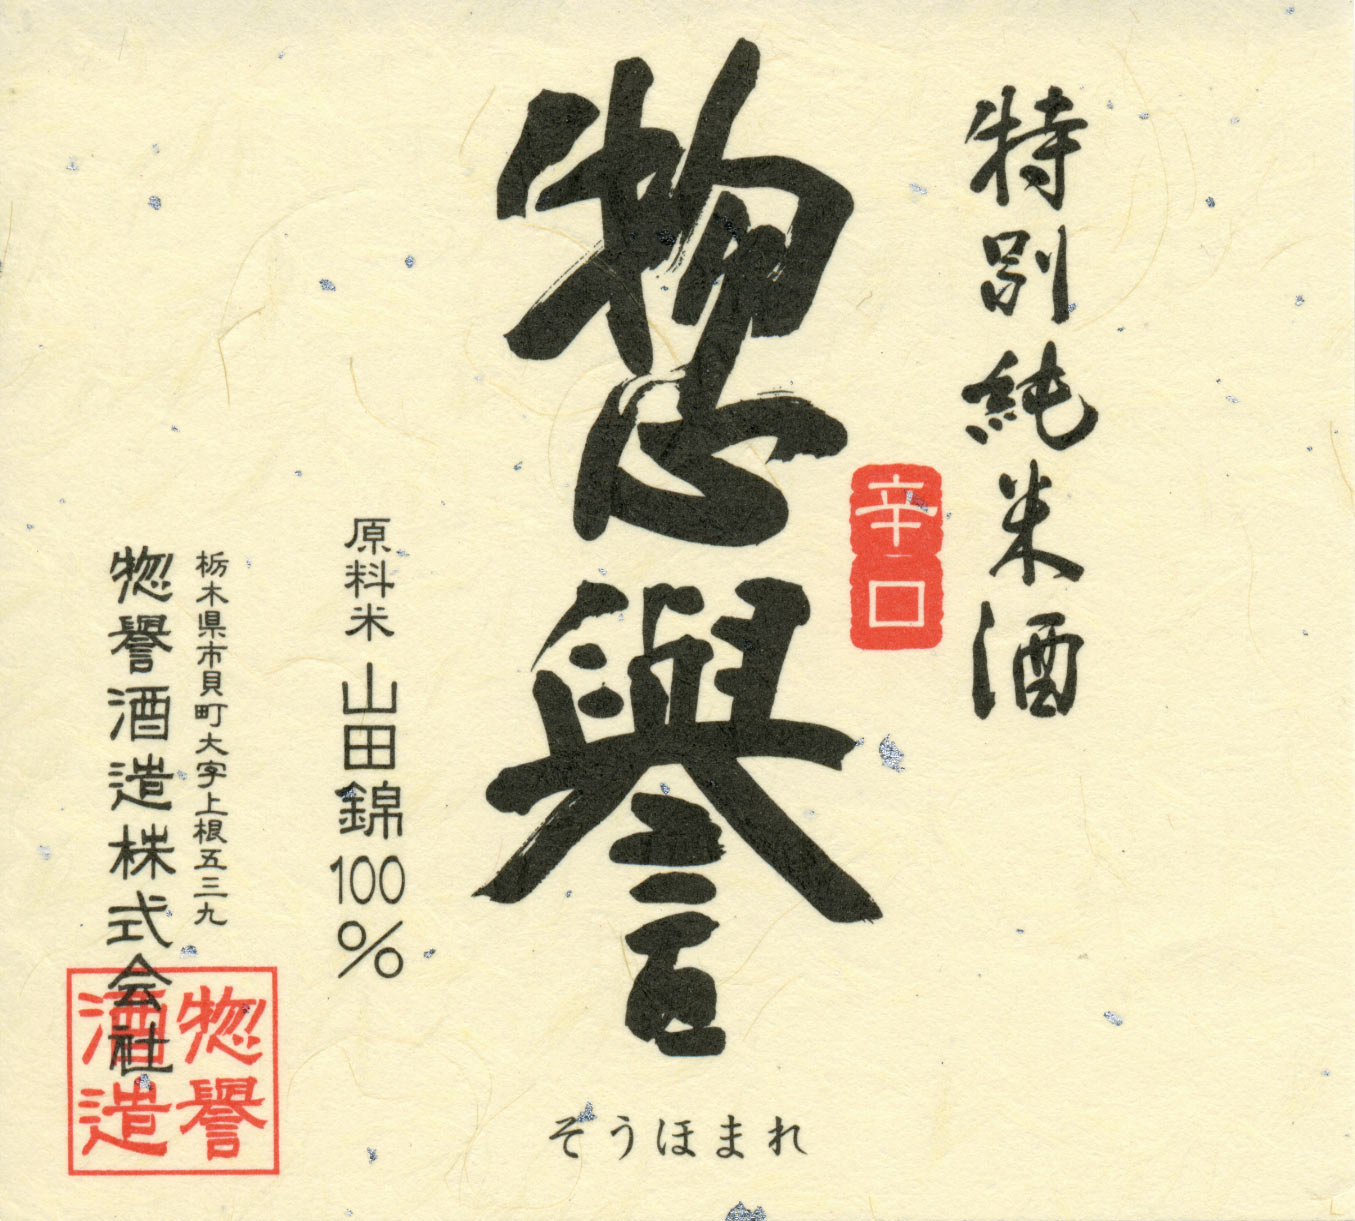 特別純米酒
辛口
惣譽
そうほまれ
原料米 山田錦100%
栃木県市貝町大字上根五三九
惣譽酒造株式会社
惣譽
酒造